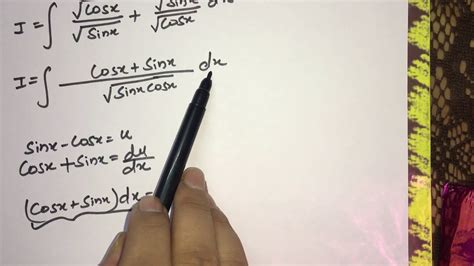 I = ∫ √cosx/√sinx + √sinx/√cosx dx
I = ∫ (cosx + sinx)/√(sinx cosx) dx
sinx - cosx = u
cosx + sinx = du/dx
(cosx + sinx) dx =